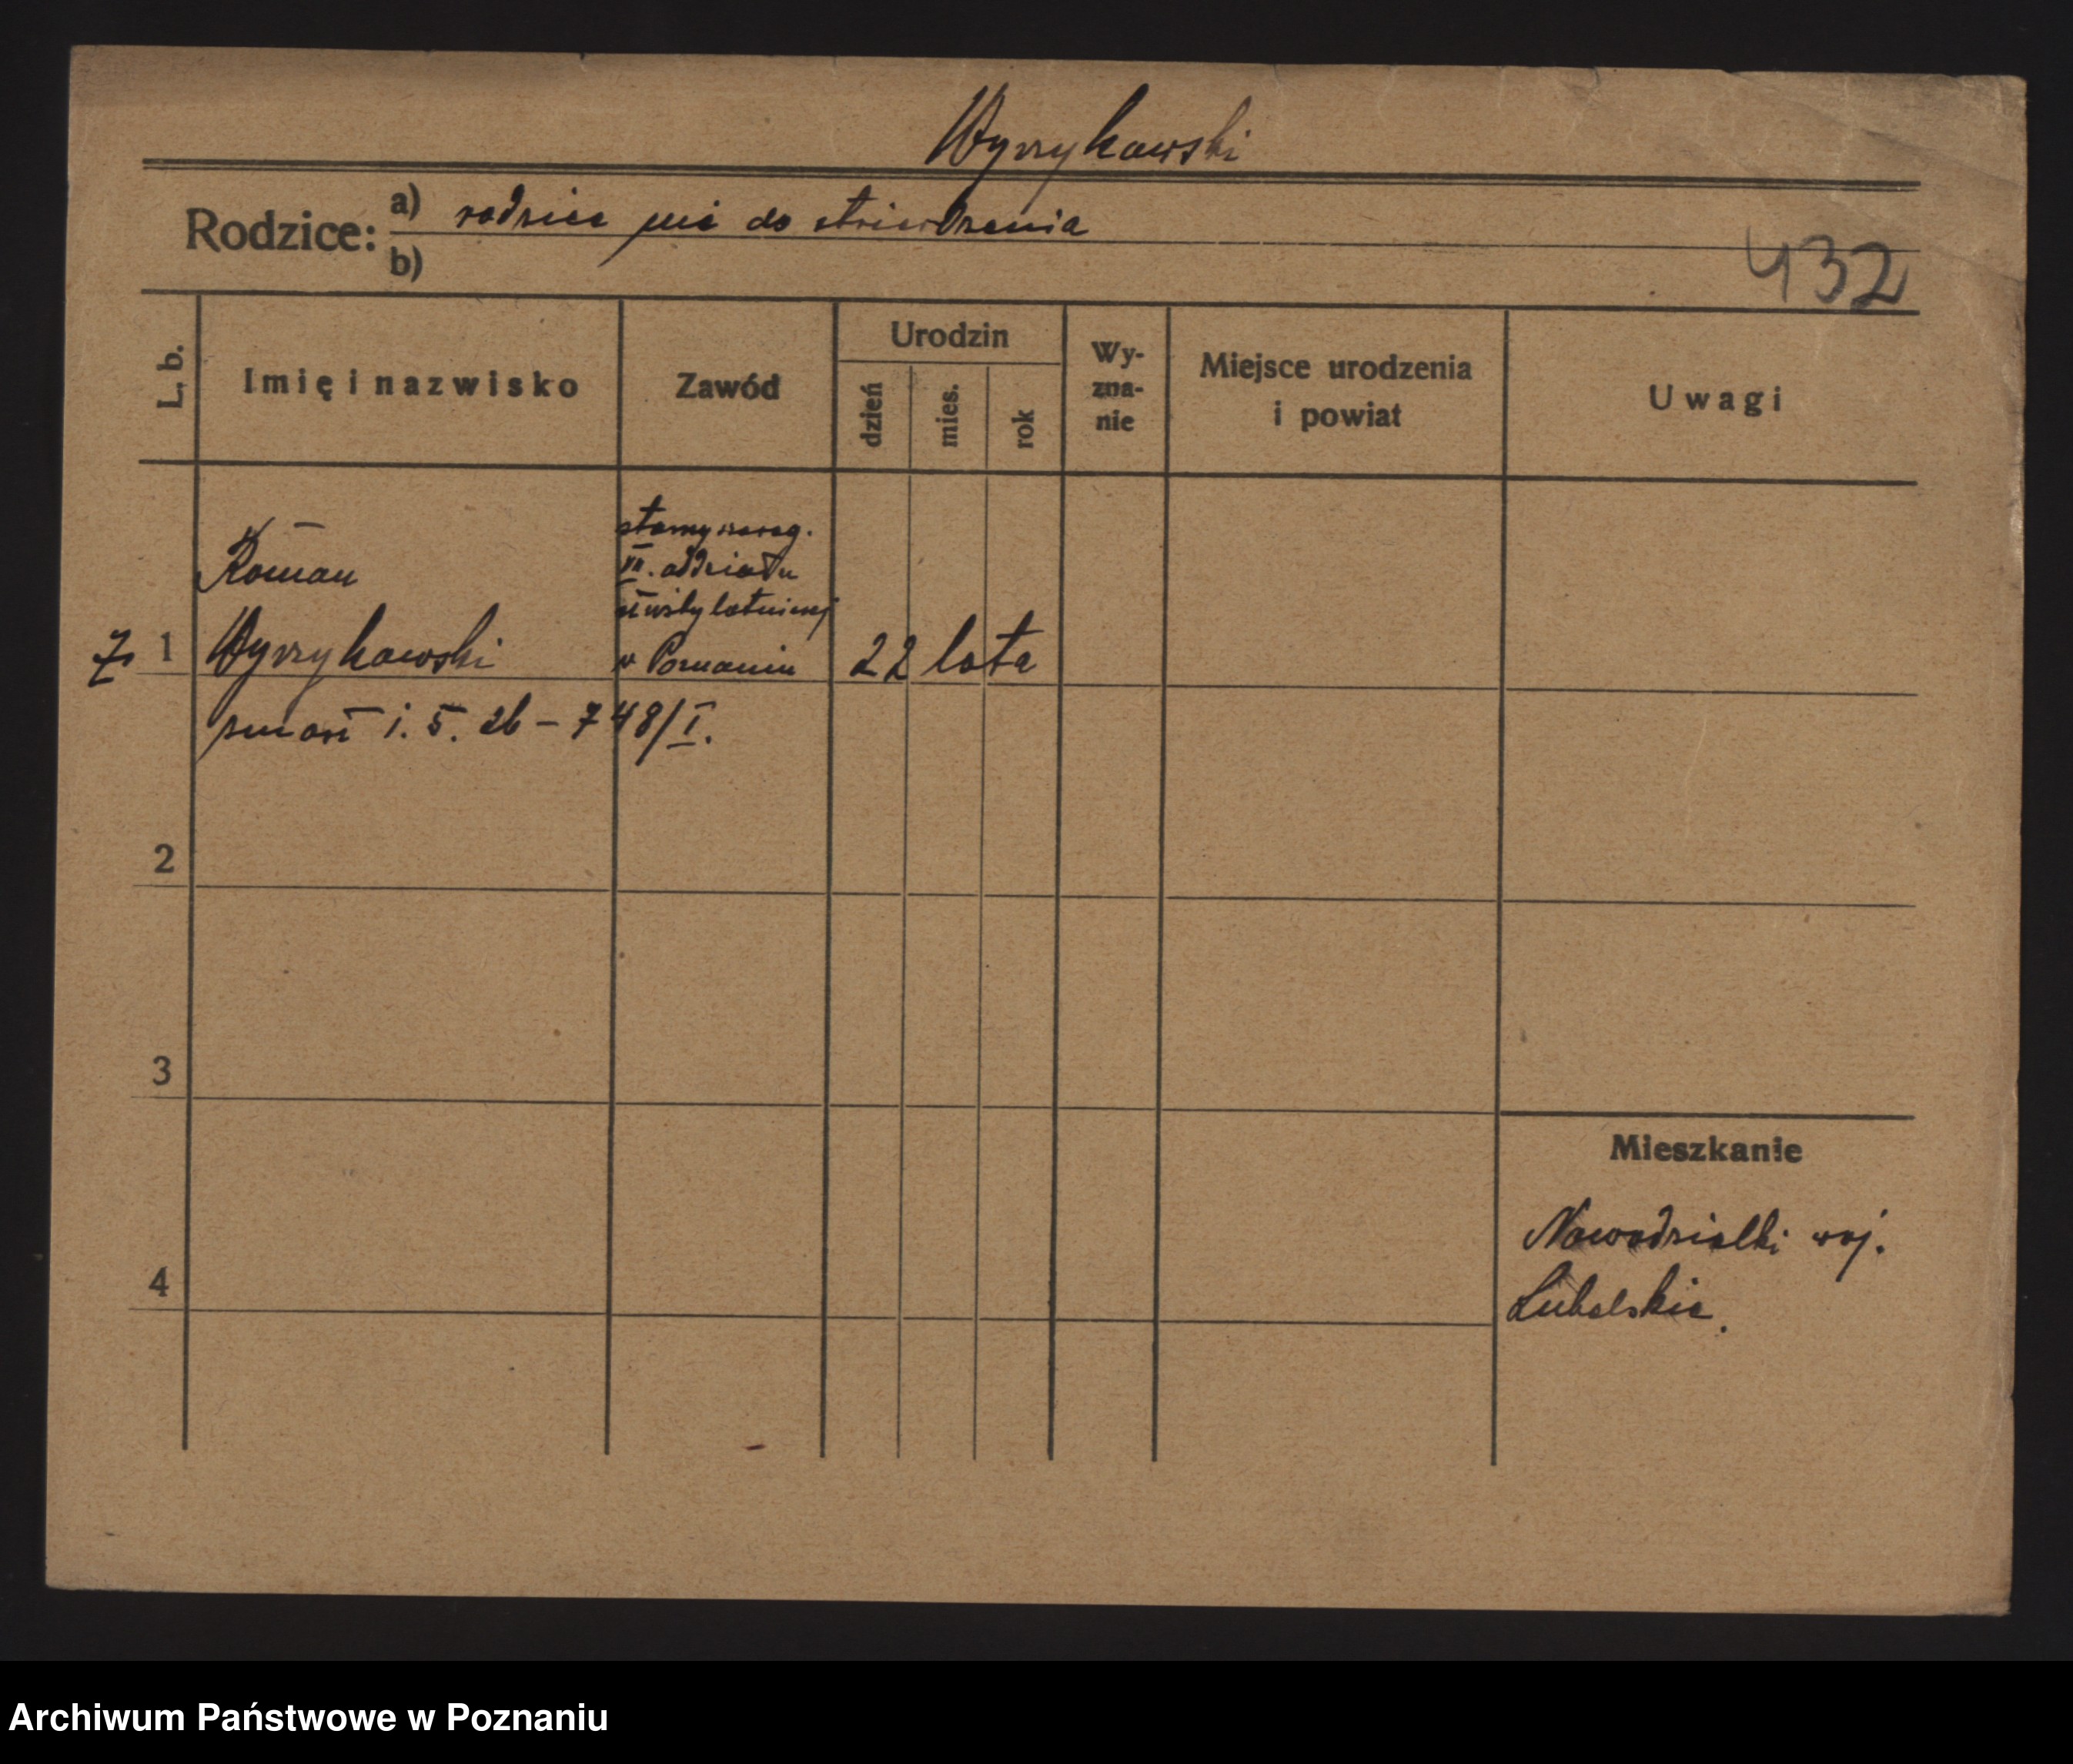 Wyrzykowski
Rodzice:
a) rodzice nie do stwierdzenia
b)
432
L. b.
Imię i nazwisko
Zawód
Urodzin
dzień
mies.
rok
Wy-
zna-
nie
Miejsce urodzenia
i powiat
Uwagi
Roman
1 Wyrzykowski
VI. oddziału
lotniczej
w Poznaniu
22 lata
zmarł 1. 5. 26 – 748/I.
2
3
4
Mieszkanie
Nowodziałki woj.
Lubelskie.
Archiwum Państwowe w Poznaniu